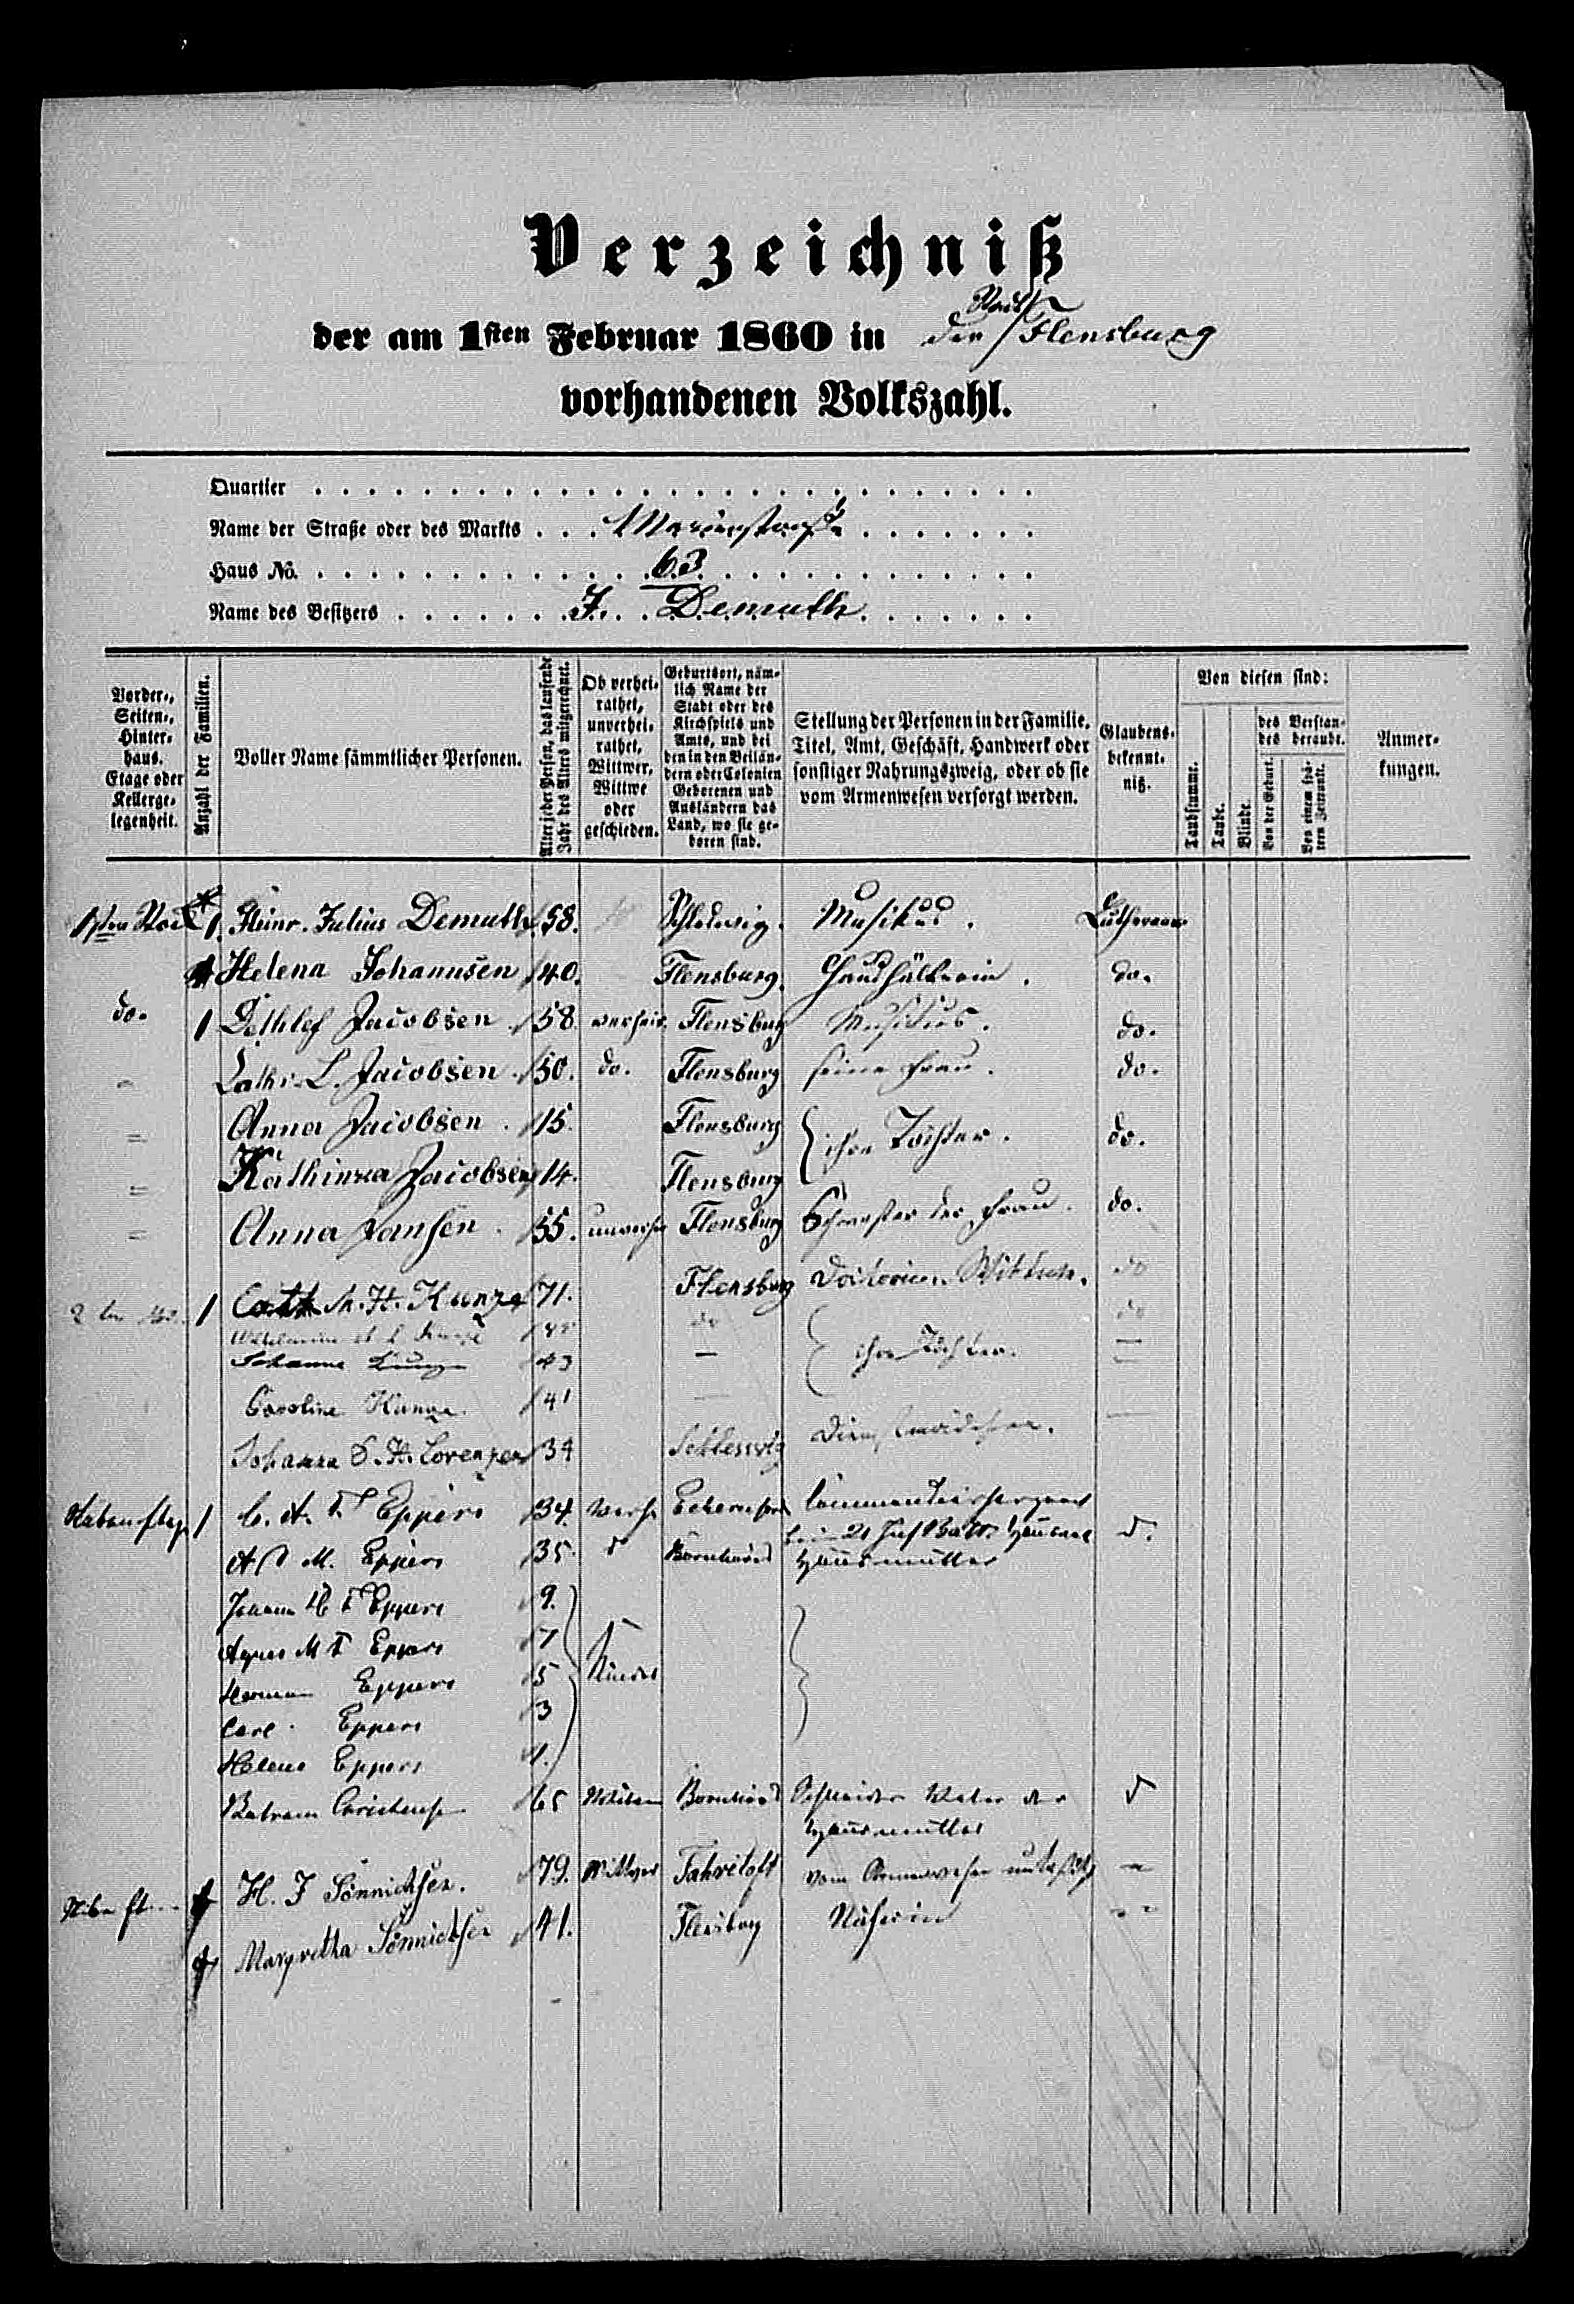 Verzeichniß
Stadt
der am 1sten Februar 1860 in der Flensburg
vorhandenen Volkszahl.
Quartier
Name der Straße oder des Markts Marienstraße
Haus No. 63
Name des Besitzers J. Demuth
Vorder-, Seiten-, Hinter-haus. Etage oder Kellergelegenheit.
Anzahl der Familien.
Voller Name sämmtlicher Personen.
Alter jeder Person, das laufende Jahr des Alters mitgerechnet.
Ob verheirathet, unverheirathet, Wittwer, Wittwe oder geschieden.
Geburtsort, nämlich Name der Stadt oder des Kirchspiels und Amts, und bei den in den Beiländern oder Colonien Geborenen und Ausländern das Land, wo sie geboren sind.
Stellung der Personen in der Familie, Titel, Amt, Geschäft, Handwerk oder sonstiger Nahrungszweig, oder ob sie vom Armenwesen versorgt werden.
Glaubensbekenntniß.
Von diesen sind:
Taubstumme.
Taube.
Blinde.
des Verstandes beraubt.
Von der Geburt.
Von einem spätern Zeitpunkt.
Anmerkungen.
1. Heinr. Julius Demuth 58. Schleswig. Musikus. Lutheraner
Helena Johannsen 40. Flensburg. Haushälterin. do.
do. 1 Dethlef Jacobsen 58. verheir. Flensburg Musikus. do.
Cathr. L. Jacobsen 50. do. Flensburg seine Frau. do.
Anna Jacobsen 15. Flensburg ihre Töchter. do.
Kathinka Jacobsen 14. Flensburg
Anna Jansen 55. unverh Flensburg Schwester der Frau. do.
1 Cath M. H. Kunze 71. Flensburg Wittwe. do
Kunze do ihre Töchter. do
Johanna Kunze 43
Caroline Kunze 41
Johanna C. H. Lorenzen 34 Schleswig Dienstmädchen.
1 C. A. F Eppers 34. verh Eckernförd
beim 21 Inf Batt. Hausvater d.
M. Eppers 35. d Bornhöved Hausmutter
Johann H F Eppers 9.
Agnes M F Eppers 7 Kinder
Herman Eppers 5
Carl Eppers 3
Helene Eppers 1.
65 Bornhöved Vater der d
Hausmutter
H. J Sönnichsen. 79. Wittwer Fahretoft vom Armenwesen
Margretha Sönnichsen 41. Flensburg Näherin